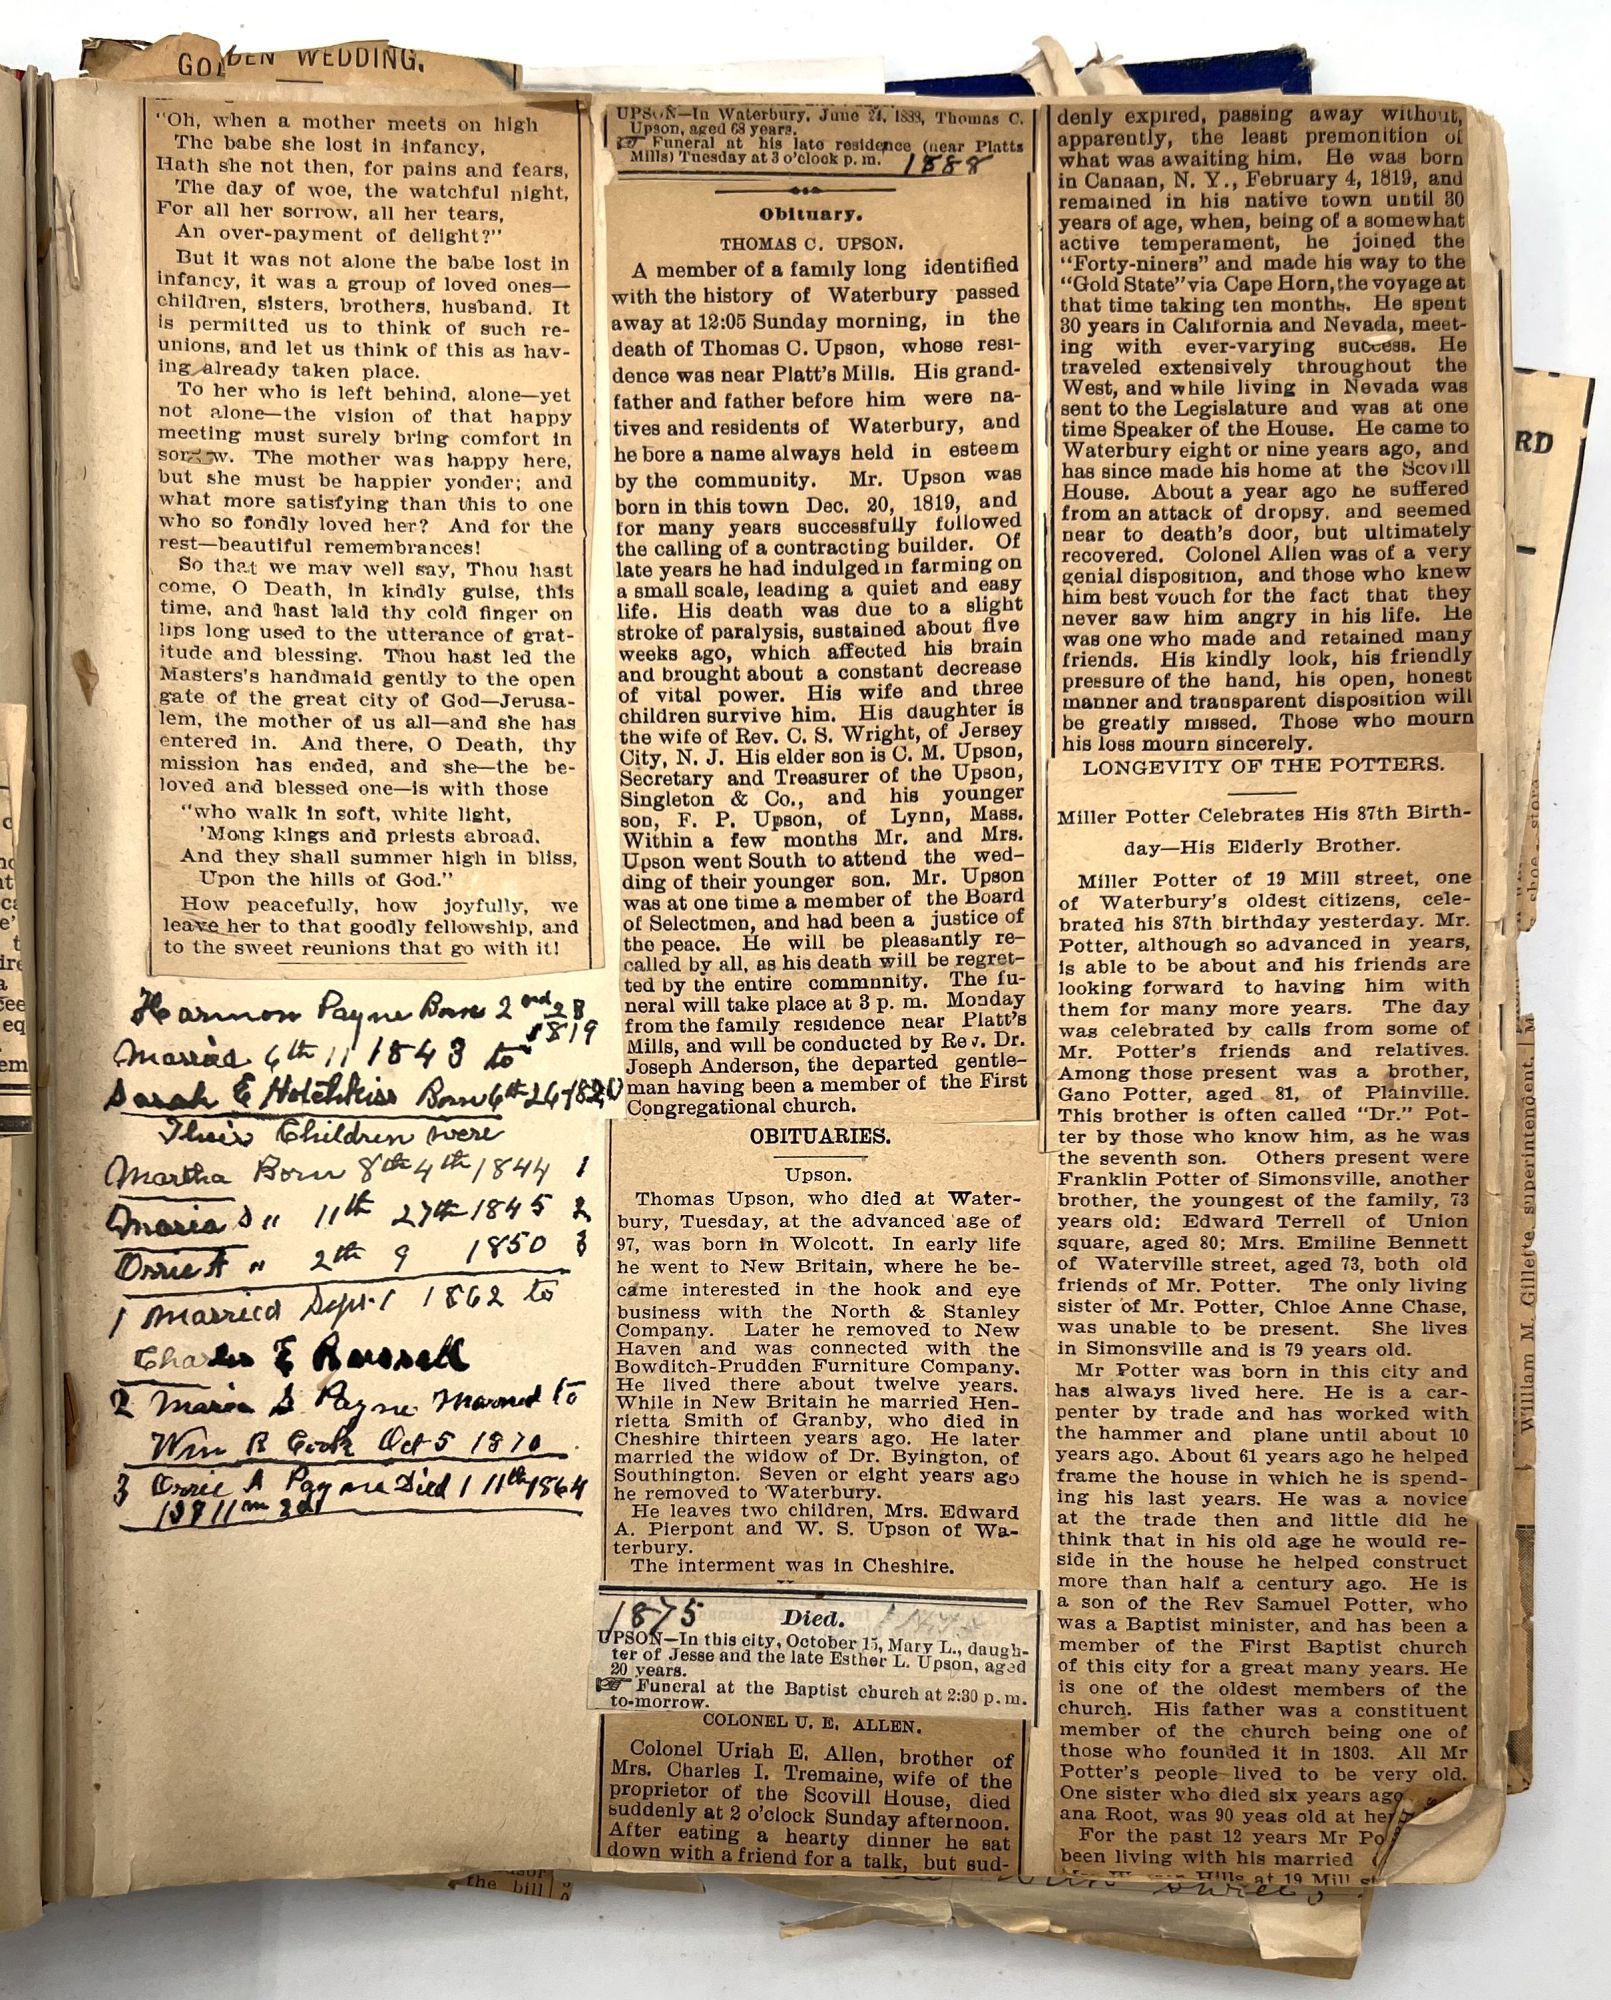 GOLDEN WEDDING.
"Oh, when a mother meets on high
The babe she lost in infancy,
Hath she not then, for pains and fears,
The day of woe, the watchful night,
For all her sorrow, all her tears,
An over-payment of delight?"
But it was not alone the babe lost in
infancy, it was a group of loved ones—
children, sisters, brothers, husband. It
is permitted us to think of such re-
unions, and let us think of this as hav-
ing already taken place.
To her who is left behind, alone—yet
not alone—the vision of that happy
meeting must surely bring comfort in
sorrow. The mother was happy here,
but she must be happier yonder; and
what more satisfying than this to one
who so fondly loved her? And for the
rest—beautiful remembrances!
So that we may well say, Thou hast
come, O Death, in kindly guise, this
time, and hast laid thy cold finger on
lips long used to the utterance of grat-
itude and blessing. Thou hast led the
Masters's handmaid gently to the open
gate of the great city of God—Jerusa-
lem, the mother of us all—and she has
entered in. And there, O Death, thy
mission has ended, and she—the be-
loved and blessed one—is with those
"who walk in soft, white light,
'Mong kings and priests abroad.
And they shall summer high in bliss,
Upon the hills of God."
How peacefully, how joyfully, we
leave her to that goodly fellowship, and
to the sweet reunions that go with it!
Harmon Payne Born 2nd 28
1819
Married 6th 11 1843 to
Sarah E Hotchkiss Born 6th 26 1820
Their Children were
Martha Born 8th 4th 1844 1
Maria S " 11th 27th 1845 2
Orrie A " 2th 9 1850 3
1 Married Sept. 1 1862 to
Charles E Russell
2 Maria S Payne Married to
Wm R Cook Oct 5 1870
3 Orrie A Payne Died 1 11th 1864
UPSON—In Waterbury, June 24, 1888, Thomas C.
Upson, aged 68 years.
☞ Funeral at his late residence (near Platts
Mills) Tuesday at 3 o'clock p. m. 1888
Obituary.
THOMAS C. UPSON.
A member of a family long identified
with the history of Waterbury passed
away at 12:05 Sunday morning, in the
death of Thomas C. Upson, whose resi-
dence was near Platt's Mills. His grand-
father and father before him were na-
tives and residents of Waterbury, and
he bore a name always held in esteem
by the community. Mr. Upson was
born in this town Dec. 20, 1819, and
for many years successfully followed
the calling of a contracting builder. Of
late years he had indulged in farming on
a small scale, leading a quiet and easy
life. His death was due to a slight
stroke of paralysis, sustained about five
weeks ago, which affected his brain
and brought about a constant decrease
of vital power. His wife and three
children survive him. His daughter is
the wife of Rev. C. S. Wright, of Jersey
City, N. J. His elder son is C. M. Upson,
Secretary and Treasurer of the Upson,
Singleton & Co., and his younger
son, F. P. Upson, of Lynn, Mass.
Within a few months Mr. and Mrs.
Upson went South to attend the wed-
ding of their younger son. Mr. Upson
was at one time a member of the Board
of Selectmen, and had been a justice of
the peace. He will be pleasantly re-
called by all, as his death will be regret-
ted by the entire community. The fu-
neral will take place at 3 p. m. Monday
from the family residence near Platt's
Mills, and will be conducted by Rev. Dr.
Joseph Anderson, the departed gentle-
man having been a member of the First
Congregational church.
OBITUARIES.
Upson.
Thomas Upson, who died at Water-
bury, Tuesday, at the advanced age of
97, was born in Wolcott. In early life
he went to New Britain, where he be-
came interested in the hook and eye
business with the North & Stanley
Company. Later he removed to New
Haven and was connected with the
Bowditch-Prudden Furniture Company.
He lived there about twelve years.
While in New Britain he married Hen-
rietta Smith of Granby, who died in
Cheshire thirteen years ago. He later
married the widow of Dr. Byington, of
Southington. Seven or eight years ago
he removed to Waterbury.
He leaves two children, Mrs. Edward
A. Pierpont and W. S. Upson of Wa-
terbury.
The interment was in Cheshire.
1875 Died.
UPSON—In this city, October 15, Mary L., daugh-
ter of Jesse and the late Esther L. Upson, aged
20 years.
☞ Funeral at the Baptist church at 2:30 p. m.
to-morrow.
COLONEL U. E. ALLEN.
Colonel Uriah E. Allen, brother of
Mrs. Charles I. Tremaine, wife of the
proprietor of the Scovill House, died
suddenly at 2 o'clock Sunday afternoon.
After eating a hearty dinner he sat
down with a friend for a talk, but sud-
denly expired, passing away without,
apparently, the least premonition of
what was awaiting him. He was born
in Canaan, N. Y., February 4, 1819, and
remained in his native town until 30
years of age, when, being of a somewhat
active temperament, he joined the
"Forty-niners" and made his way to the
"Gold State" via Cape Horn, the voyage at
that time taking ten months. He spent
30 years in California and Nevada, meet-
ing with ever-varying success. He
traveled extensively throughout the
West, and while living in Nevada was
sent to the Legislature and was at one
time Speaker of the House. He came to
Waterbury eight or nine years ago, and
has since made his home at the Scovill
House. About a year ago he suffered
from an attack of dropsy, and seemed
near to death's door, but ultimately
recovered. Colonel Allen was of a very
genial disposition, and those who knew
him best vouch for the fact that they
never saw him angry in his life. He
was one who made and retained many
friends. His kindly look, his friendly
pressure of the hand, his open, honest
manner and transparent disposition will
be greatly missed. Those who mourn
his loss mourn sincerely.
LONGEVITY OF THE POTTERS.
Miller Potter Celebrates His 87th Birth-
day—His Elderly Brother.
Miller Potter of 19 Mill street, one
of Waterbury's oldest citizens, cele-
brated his 87th birthday yesterday. Mr.
Potter, although so advanced in years,
is able to be about and his friends are
looking forward to having him with
them for many more years. The day
was celebrated by calls from some of
Mr. Potter's friends and relatives.
Among those present was a brother,
Gano Potter, aged 81, of Plainville.
This brother is often called "Dr." Pot-
ter by those who know him, as he was
the seventh son. Others present were
Franklin Potter of Simonsville, another
brother, the youngest of the family, 73
years old; Edward Terrell of Union
square, aged 80; Mrs. Emiline Bennett
of Waterville street, aged 73, both old
friends of Mr. Potter. The only living
sister of Mr. Potter, Chloe Anne Chase,
was unable to be present. She lives
in Simonsville and is 79 years old.
Mr Potter was born in this city and
has always lived here. He is a car-
penter by trade and has worked with
the hammer and plane until about 10
years ago. About 61 years ago he helped
frame the house in which he is spend-
ing his last years. He was a novice
at the trade then and little did he
think that in his old age he would re-
side in the house he helped construct
more than half a century ago. He is
a son of the Rev Samuel Potter, who
was a Baptist minister, and has been a
member of the First Baptist church
of this city for a great many years. He
is one of the oldest members of the
church. His father was a constituent
member of the church being one of
those who founded it in 1803. All Mr
Potter's people lived to be very old.
One sister who died six years ago
ana Root, was 90 yeas old at her
For the past 12 years Mr Po
been living with his married
Hills at 19 Mill st
RD
William M. Gillette, superintendent.
the bill